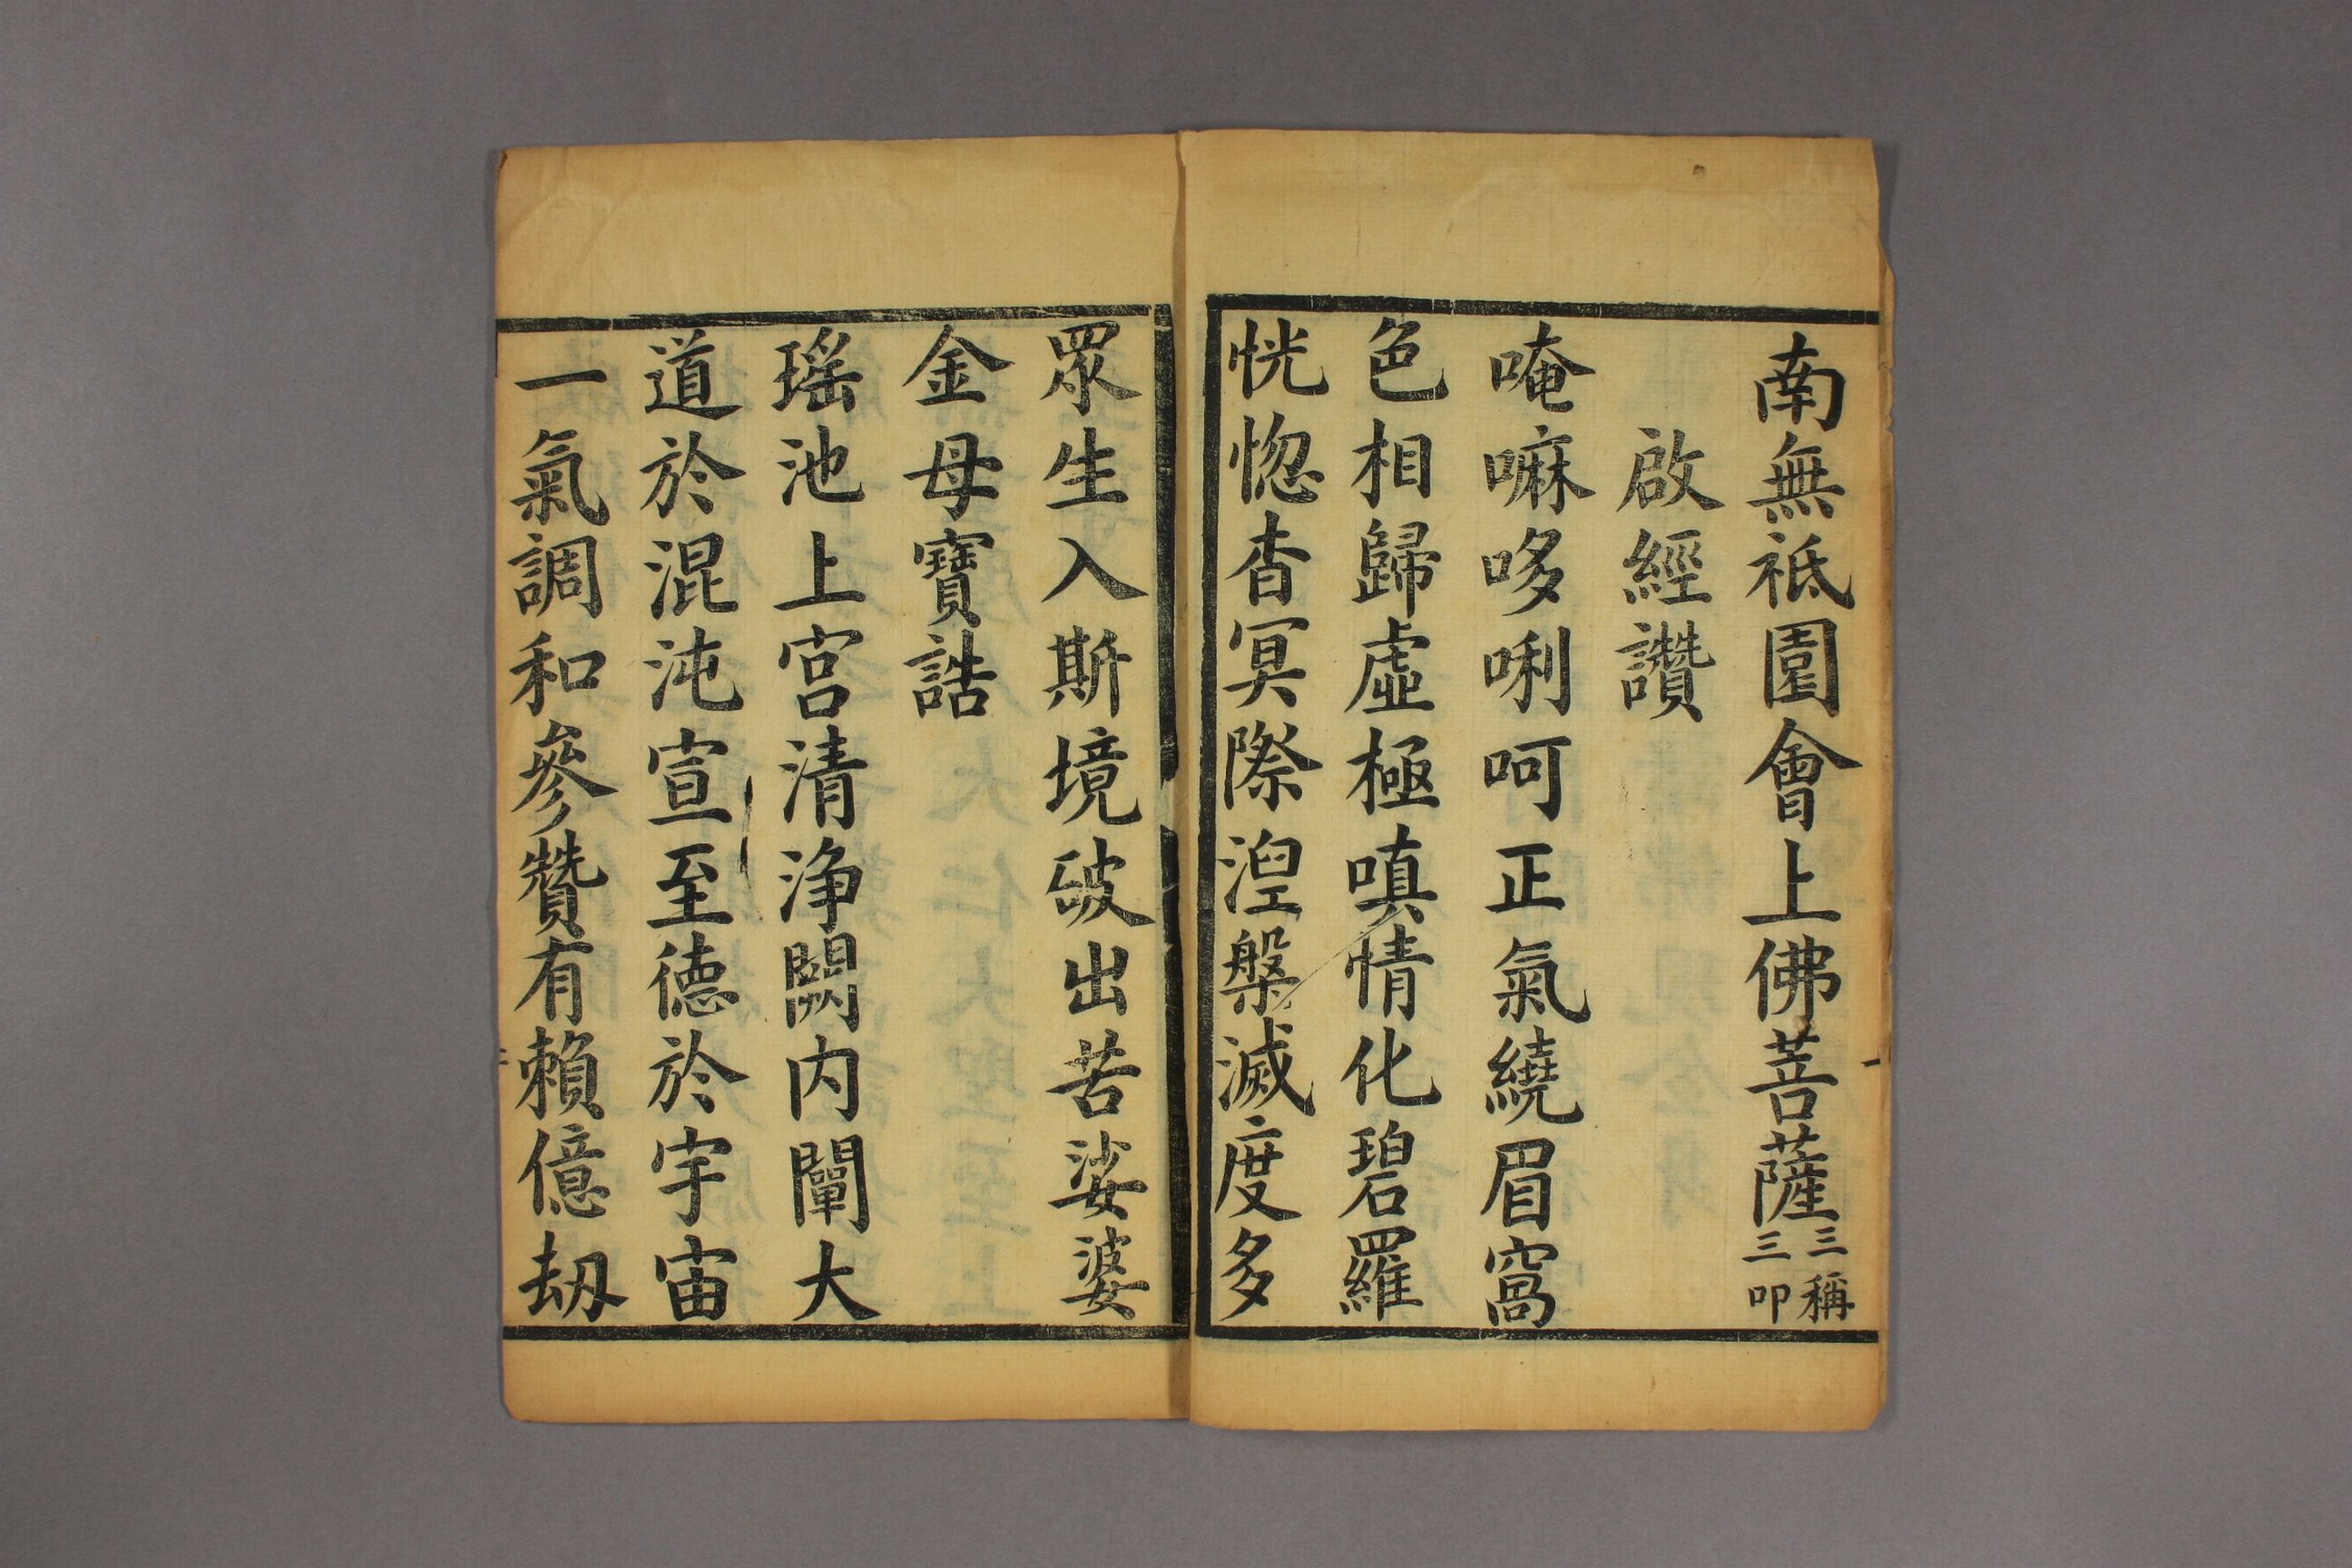 南無祗園會上佛菩薩三稱三叩
啟經讚
唵嘛哆唎呵正氣繞眉窩
色相歸虛極嗔情化碧羅
恍惚杳冥際湼槃滅度多
眾生入斯境破出苦娑婆
金母寶誥
瑤池上宮清淨闕内闡大
道於混沌宣至德於宇宙
一氣調和參贊有賴億刼